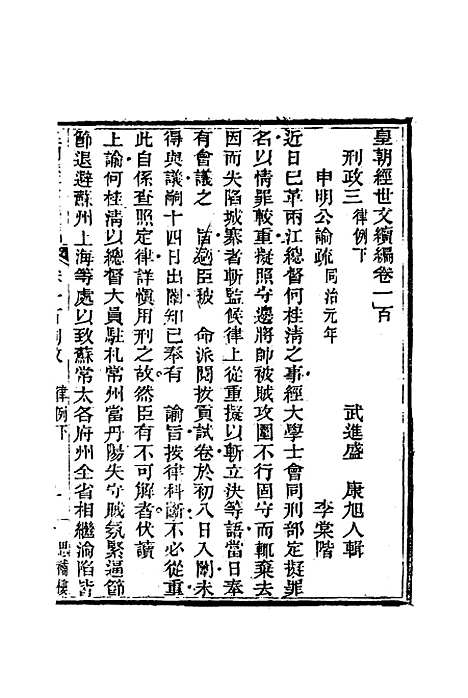 皇朝經世文續編卷一百
武進盛　康旭人輯
刑政三律例下
申明公論疏同治元年　李棠階
近日已革兩江總督何桂清之事經大學士會同刑部定擬罪
名以情罪較重擬照守邊將帥被賊攻圍不行固守而輒棄去
因而失陷城寨者斬監候律上從重擬以斬立決等語當日奉
有會議之　旨適臣被　命派閱拔貢試卷於初八日入闈未
得與議嗣十四日出闈知已奉有　諭旨按律科斷不必從重
此自係查照定律詳愼用刑之故然臣有不可解者伏讀
上諭何桂清以總督大員駐札常州當丹陽失守賊氛緊逼節
節退避蘇州上海等處以致蘇常太各府州全省相繼淪陷皆
律例下
思補樓